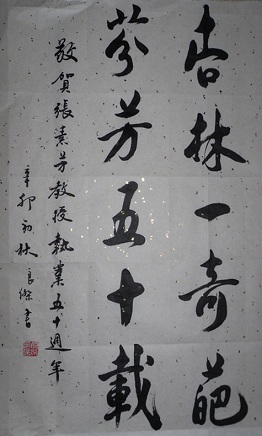 杏林一奇葩
芬芳五十載
敬賀張素芳教授執業五十週年
辛卯初秋 良傑書